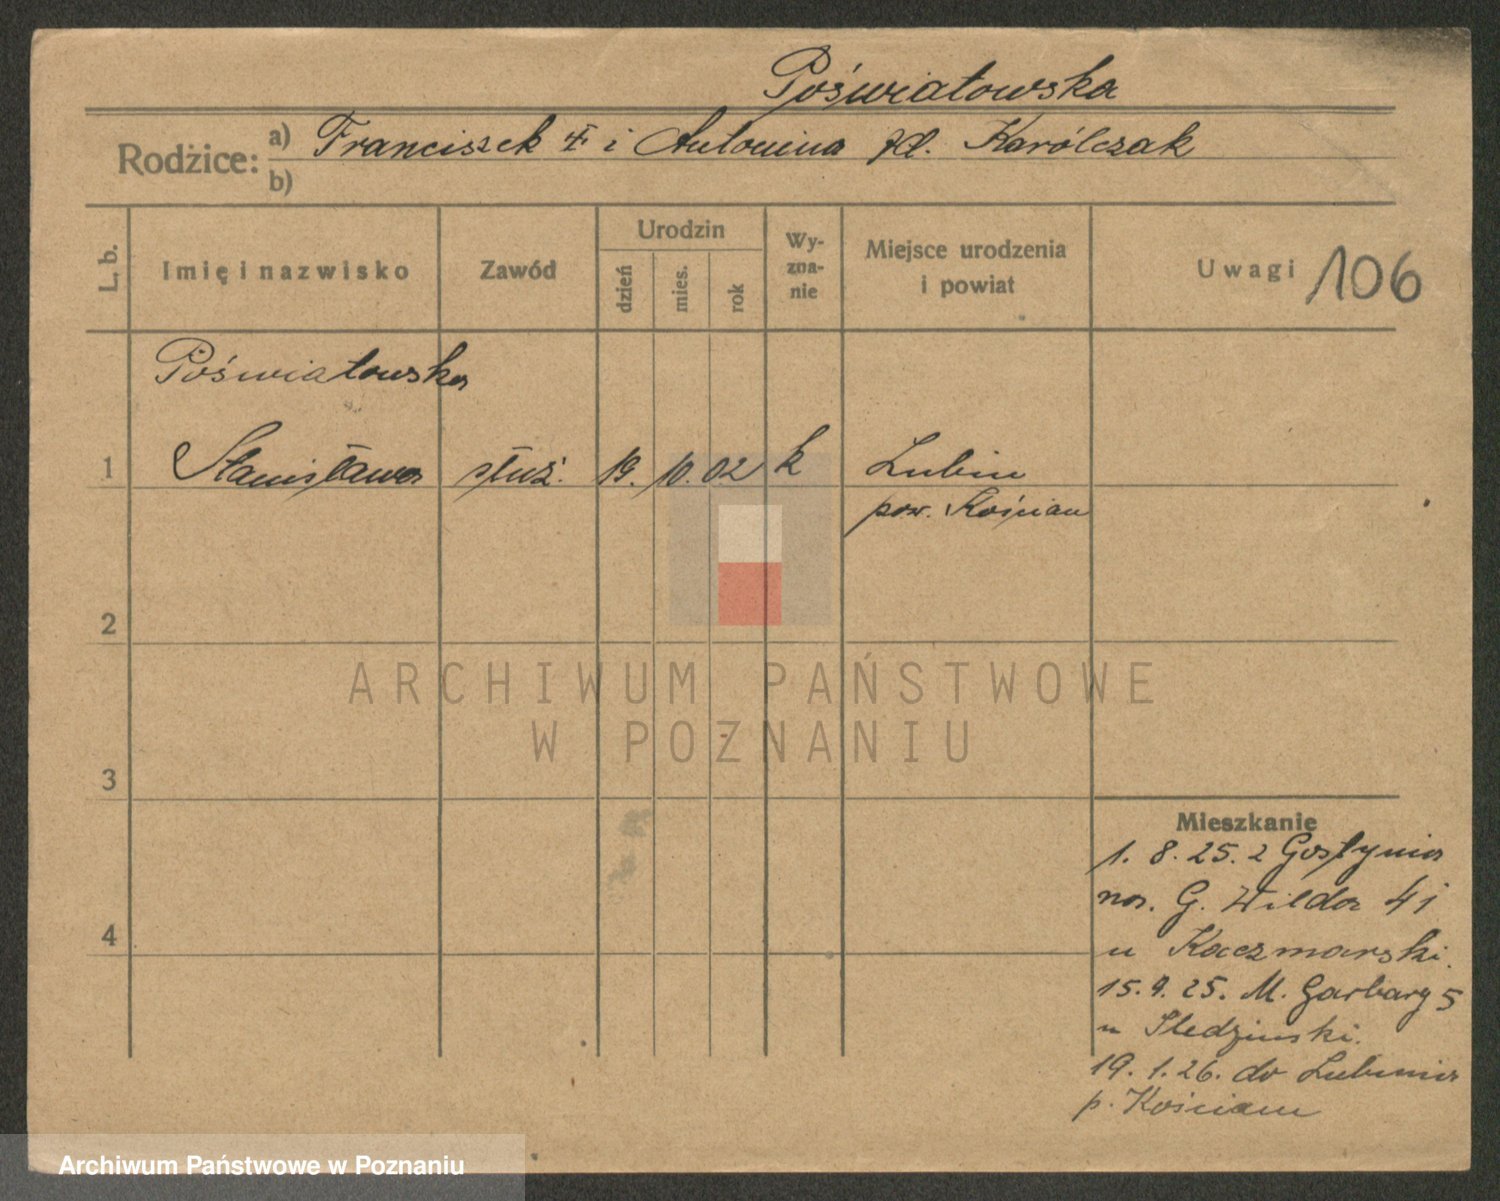 Poświatowska
Rodzice: a) Franciszek † i Antonina zd. Karólczak
b)
L. b.
Imię i nazwisko
Zawód
Urodzin
dzień
mies.
rok
Wy-
zna-
nie
Miejsce urodzenia
i powiat
Uwagi 106
Poświatowska
1 Stanisława służ. 19. 10. 02 k Lubin
pow. Kościan
2
ARCHIWUM PAŃSTWOWE
W POZNANIU
3
Mieszkanie
1. 8. 25. z Gostynia
na. G. Wilda 41
4
u Kaczmarski.
15. 9. 25. M. Garbary 5
u Sledzinski.
19. 1. 26. do Lubinia
p. Kościan
Archiwum Państwowe w Poznaniu